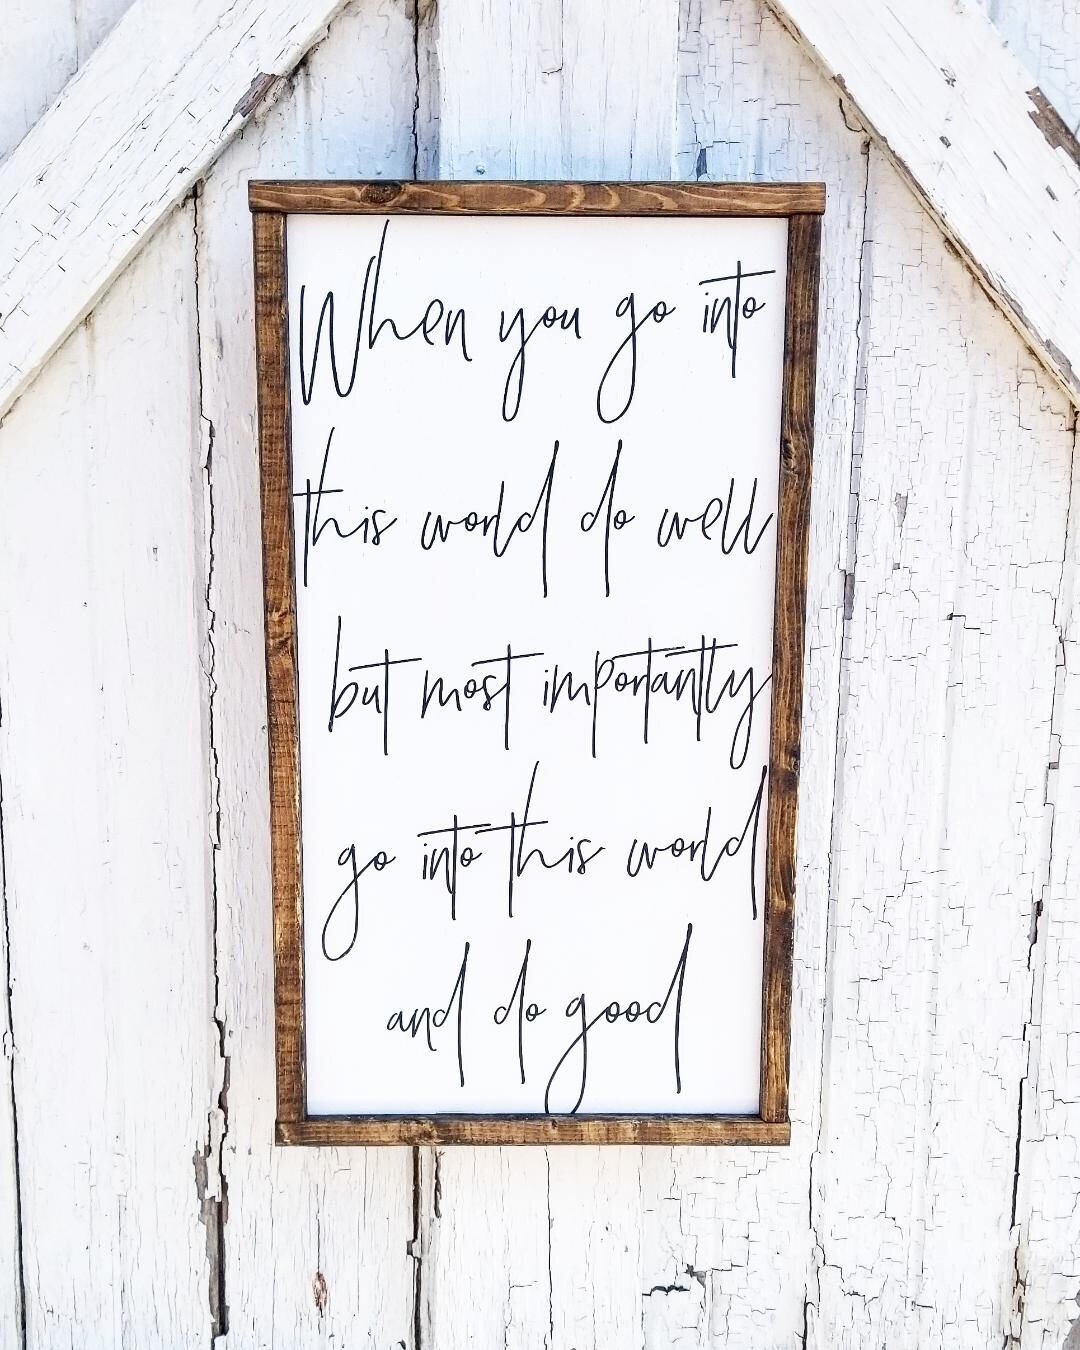 When you go into
this world do well
but most importantly
go into this world
and do good